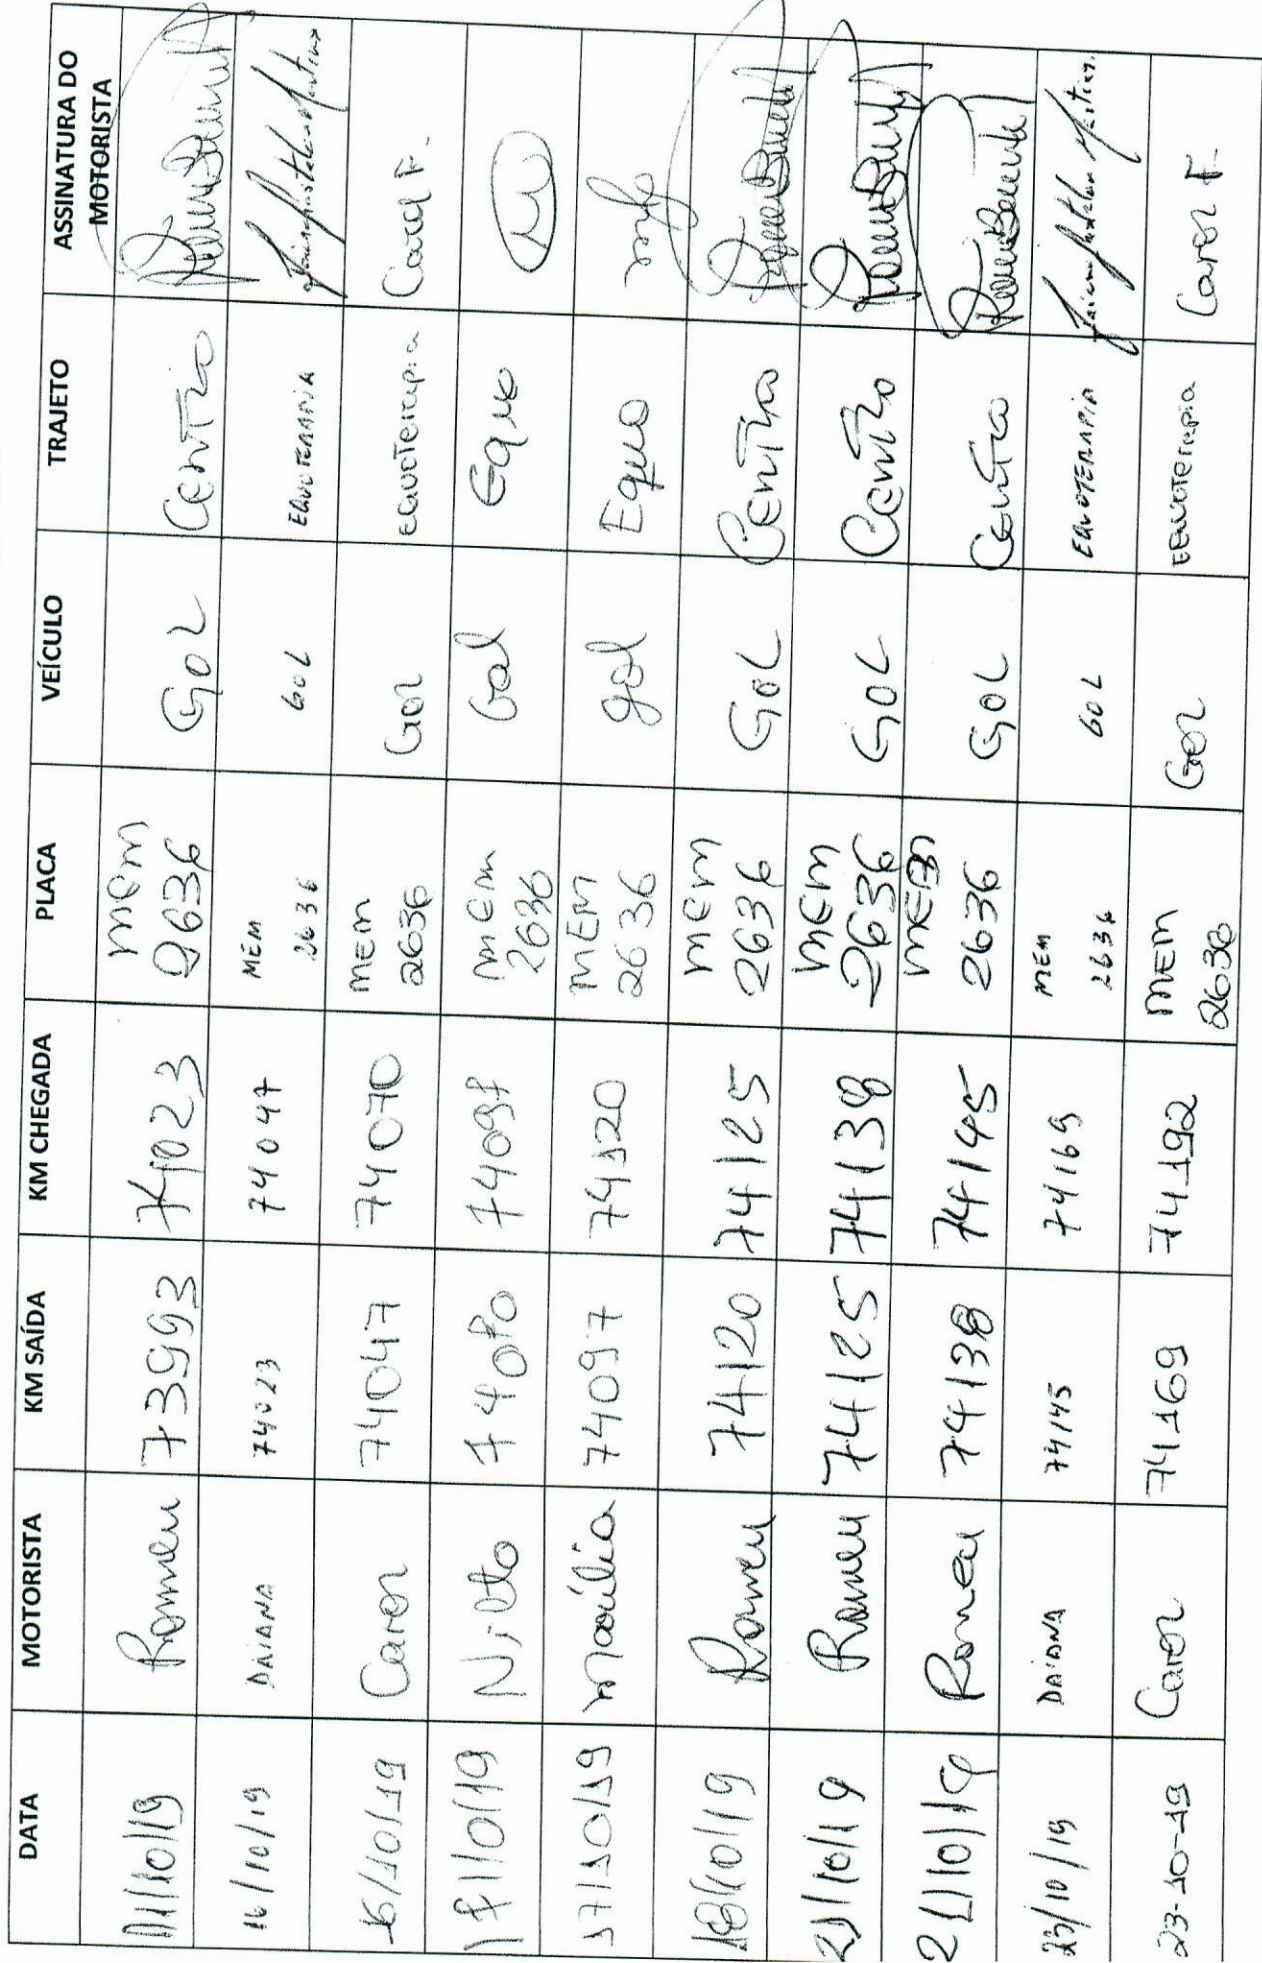 DATA MOTORISTA KM SAÍDA KM CHEGADA PLACA VEÍCULO TRAJETO ASSINATURA DO MOTORISTA
11/10/19 Romeu 73993 74023 MEM 2636 GOL Centro
16/10/19 DAIANA 74023 74047 MEM 2636 GOL EQUOTERAPIA
16/10/19 Carol 74047 74070 MEM 2636 Gol EQUOTERAPIA Carol F.
17/10/19 Nilto 74080 74097 MEM 2636 Gol Equo
17/10/19 Maúlia 74097 74120 MEM 2636 gol Equo
18/10/19 Romeu 74120 74125 MEM 2636 GOL Centro
21/10/19 Romeu 74125 74138 MEM 2636 GOL Centro
21/10/19 Romeu 74138 74145 MEM 2636 GOL Centro
23/10/19 DAIANA 74145 74169 MEM 2636 GOL EQUOTERAPIA
23-10-19 Carol 74169 74192 MEM 2636 Gol EQUOTERAPIA Carol F.